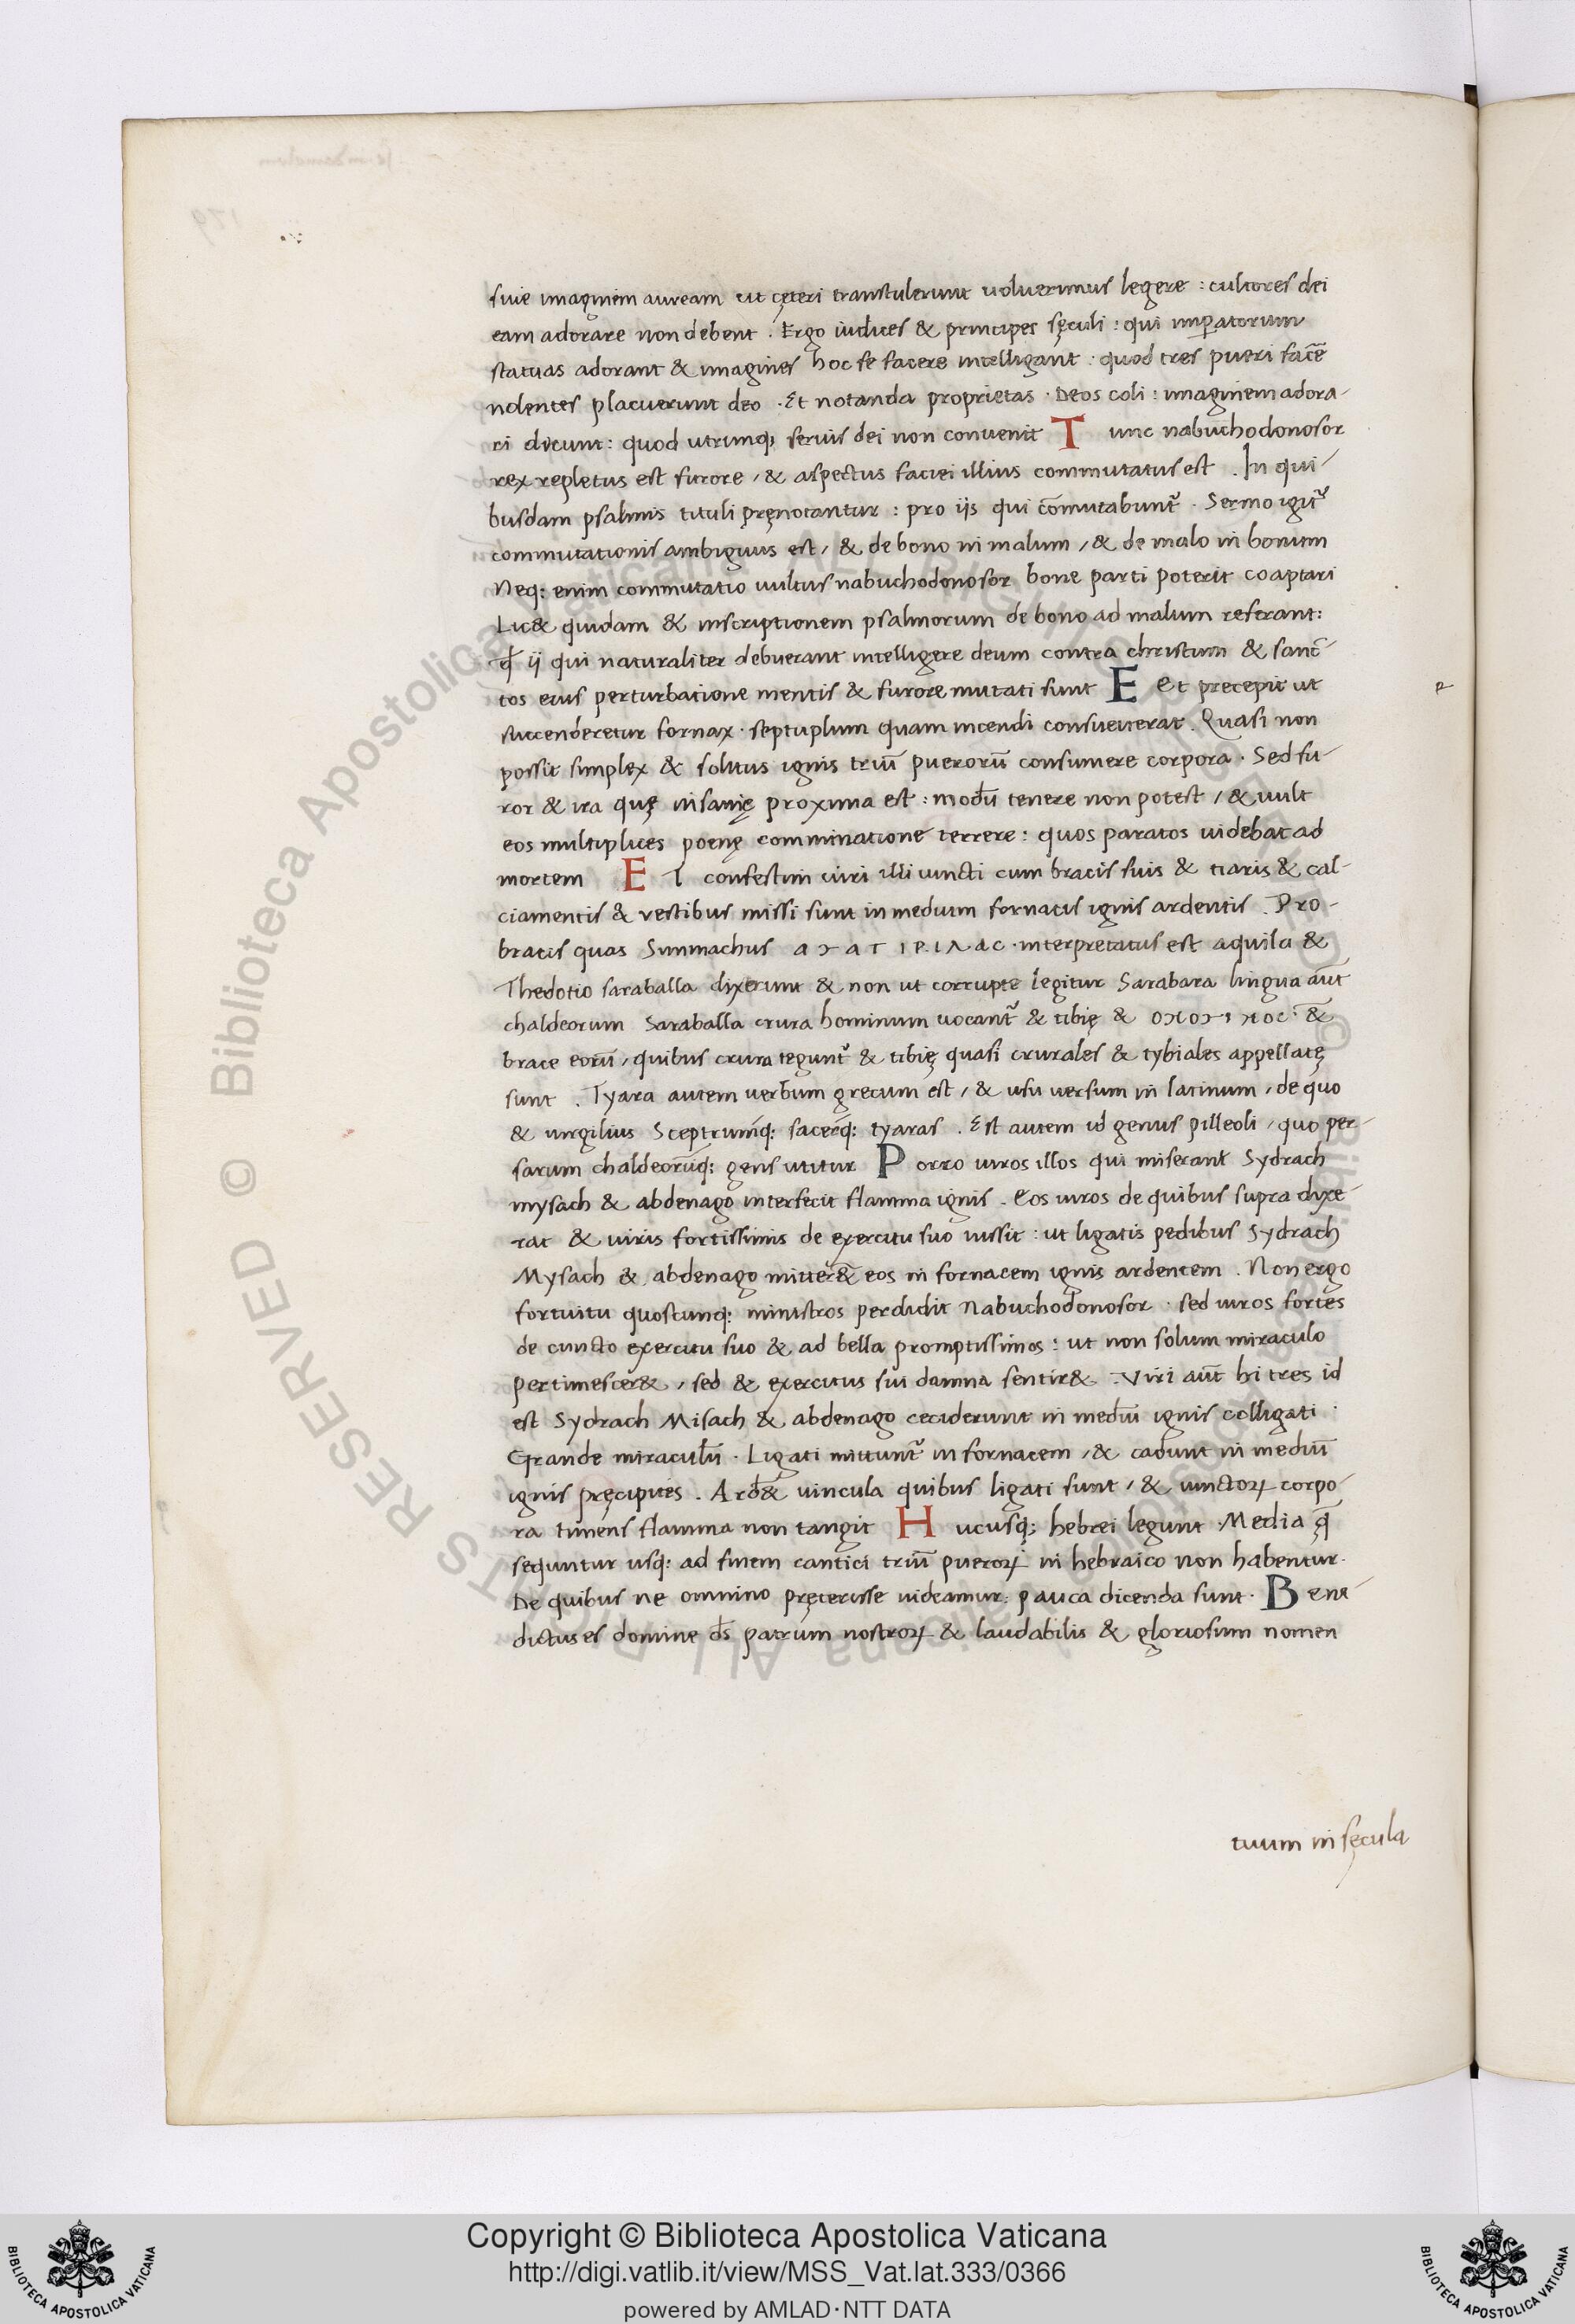 siue imaginem auream ut cęteri transtulerunt uoluerimus legere : cultores dei
eam adorare non debent . Ergo iudices & principes sęculi : qui imꝑatorum
statuas adorant & imagines hoc se facere intelligant : quod tres pueri facē
nolentes placuerunt deo . Et notanda proprietas . Deos coli : imaginem adora-
ri dicunt : quod utrunq; seruis dei non conuenit T unc nabuchodonosor
rex repletus est furore , & aspectus faciei illius commutatus est . In qui-
busdam psalmis tituli pręnotantur : pro iis qui cōmutabunt᷑ . Sermo igit᷑
commutationis ambiguus est , & de bono in malum , & de malo in bonum
Neq: enim commutatio uultus nabuchodonosor bone parti poterit coaptari
Lic& quidam & inscriptionem psalmorum de bono ad malum referant :
ꝙ ii qui naturaliter debuerant intelligere deum contra christum & sanc-
tos eius perturbatione mentis & furore mutati sunt E et precepit ut
succenderetur fornax . septuplum quam incendi consueuerat . Quasi non
possit simplex & solitus ignis triū puerorū consumere corpora . Sed fu-
ror & ira quę insanię proxima est : modū tenere non potest , & uult
eos multiplices poenę comminatione terrere : quos paratos uidebat ad
mortem E T confestim uiri illi uincti cum bracis suis & tiaris & cal-
ciamentis & vestibus missi sunt in medium fornacis ignis ardentis . Pro-
bracis quas Simmachus interpretatus est aquila &
Thedotio saraballa dixerunt & non ut corrupte legitur Sarabara lingua aūt
chaldeorum Saraballa crura hominum uocant᷑ & tibię & &
brace eorū , quibus crura tegunt᷑ & tibię quasi crurales & tybiales appellatę
sunt . Tyara autem uerbum grecum est , & usu uersum in latinum , de quo
& uirgilius Sceptrumq: sacerq: tyaras . Est autem id genus pilleoli , quo per-
sarum chaldeorūq: gens utitur P orro uiros illos qui miserant Sydrach
mysach & abdenago interfecit flamma ignis . Eos uiros de quibus supra dixe-
rat & uiris fortissimis de exercitu suo iussit : ut ligatis pedibus Sydrach
Mysach & abdenago mitter& eos in fornacem ignis ardentem . Non ergo
fortuitu quoscunq: ministros perdidit Nabuchodonosor . sed uiros fortes
de cuncto exercitu suo & ad bella promptissimos : ut non solum miraculo
pertimescer& , sed & exercitus sui damna sentir& . Viri aūt hi tres id
est Sydrach Misach & abdenago ceciderunt in mediū ignis colligati .
Grande miraculū . Ligati mittunt᷑ in fornacem , & cadunt in mediū
ignis pręcipites . Ard& uincula quibus ligati sunt , & uinctoꝝ corpo-
ra timens flamma non tangit H ucusq; hebrei legunt . Media q̄
sequntur usq: ad finem cantici triū pueroꝝ in hebraico non habentur .
De quibus ne omnino pręterisse uideamur : pauca dicenda sunt . B ene-
dictus es domine ds̄ patrum nostroꝝ & laudabilis & gloriosum nomen
tuum in sęcula
Copyright © Biblioteca Apostolica Vaticana
http://digi.vatlib.it/view/MSS_Vat.lat.333/0366
powered by AMLAD·NTT DATA
BIBLIOTECA APOSTOLICA VATICANA
BIBLIOTECA APOSTOLICA VATICANA